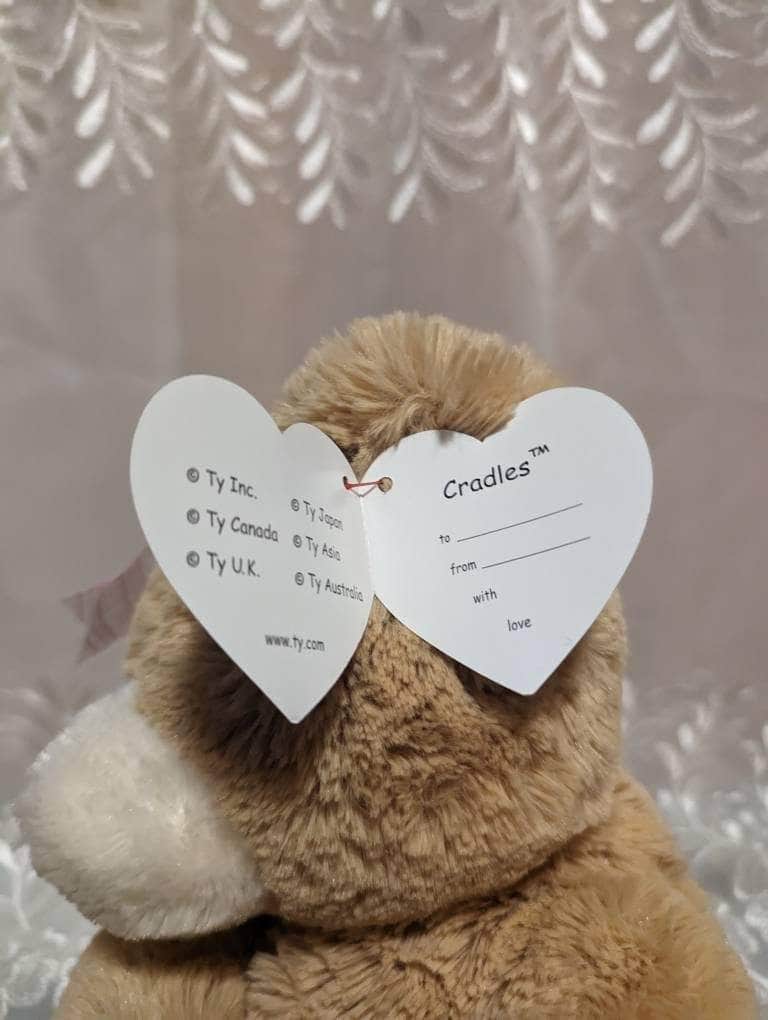 © Ty Inc.
© Ty Canada
© Ty U.K.
© Ty Japan
© Ty Asia
© Ty Australia
www.ty.com
Cradles™
to
from
with
love